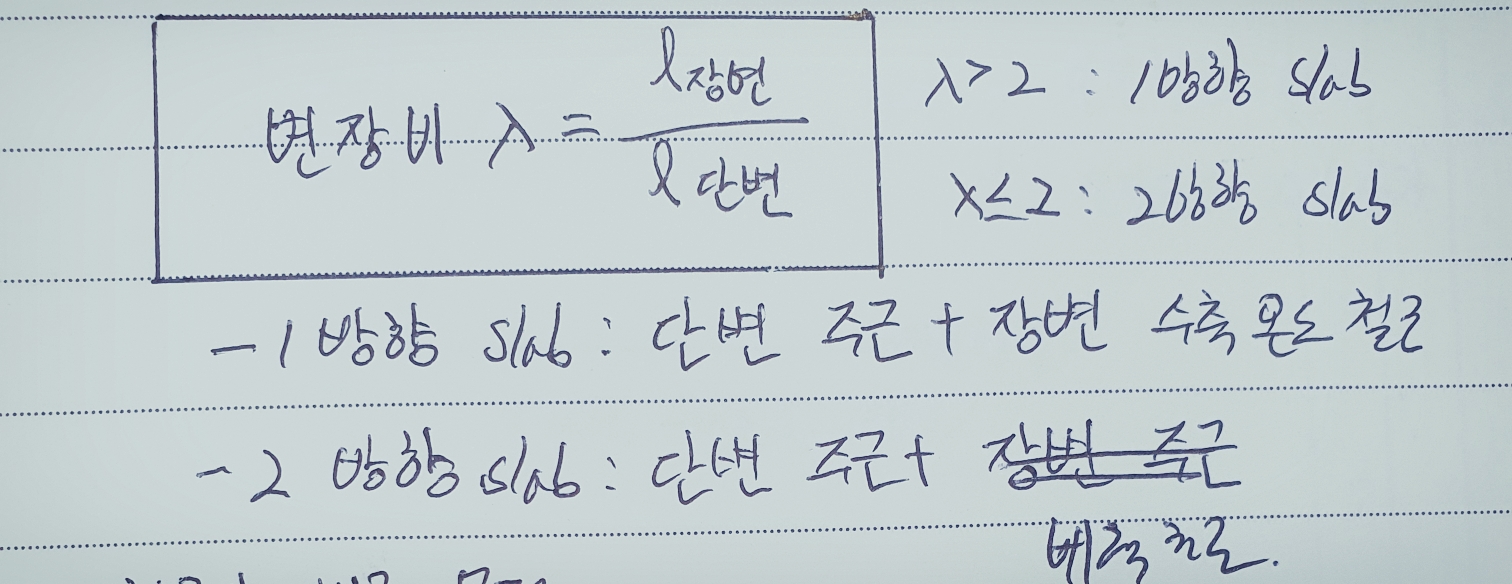 변장비 λ = l장변 / l단변
λ > 2 : 1방향 slab
λ ≤ 2 : 2방향 slab
- 1 방향 slab : 단변 주근 + 장변 수축 온도 철근
- 2 방향 slab : 단변 주근 + 장변 주근
배력 철근.